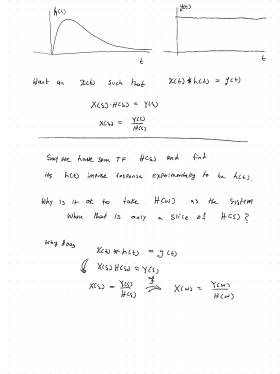 h(t)
y(t)
t
t
Want an x(t) such that x(t) * h(t) = y(t)
X(s) · H(s) = Y(s)
X(s) = Y(s) / H(s)
Say we have som TF H(s) and find
its h(t) impulse response experimentally to be h(t).
Why is it ok to take H(ω) as the system
when that is only a slice of H(s)?
Why does
x(t) * h(t) = y(t)
X(s) H(s) = Y(s)
X(s) = Y(s) / H(s) ⇒ X(ω) = Y(ω) / H(ω)